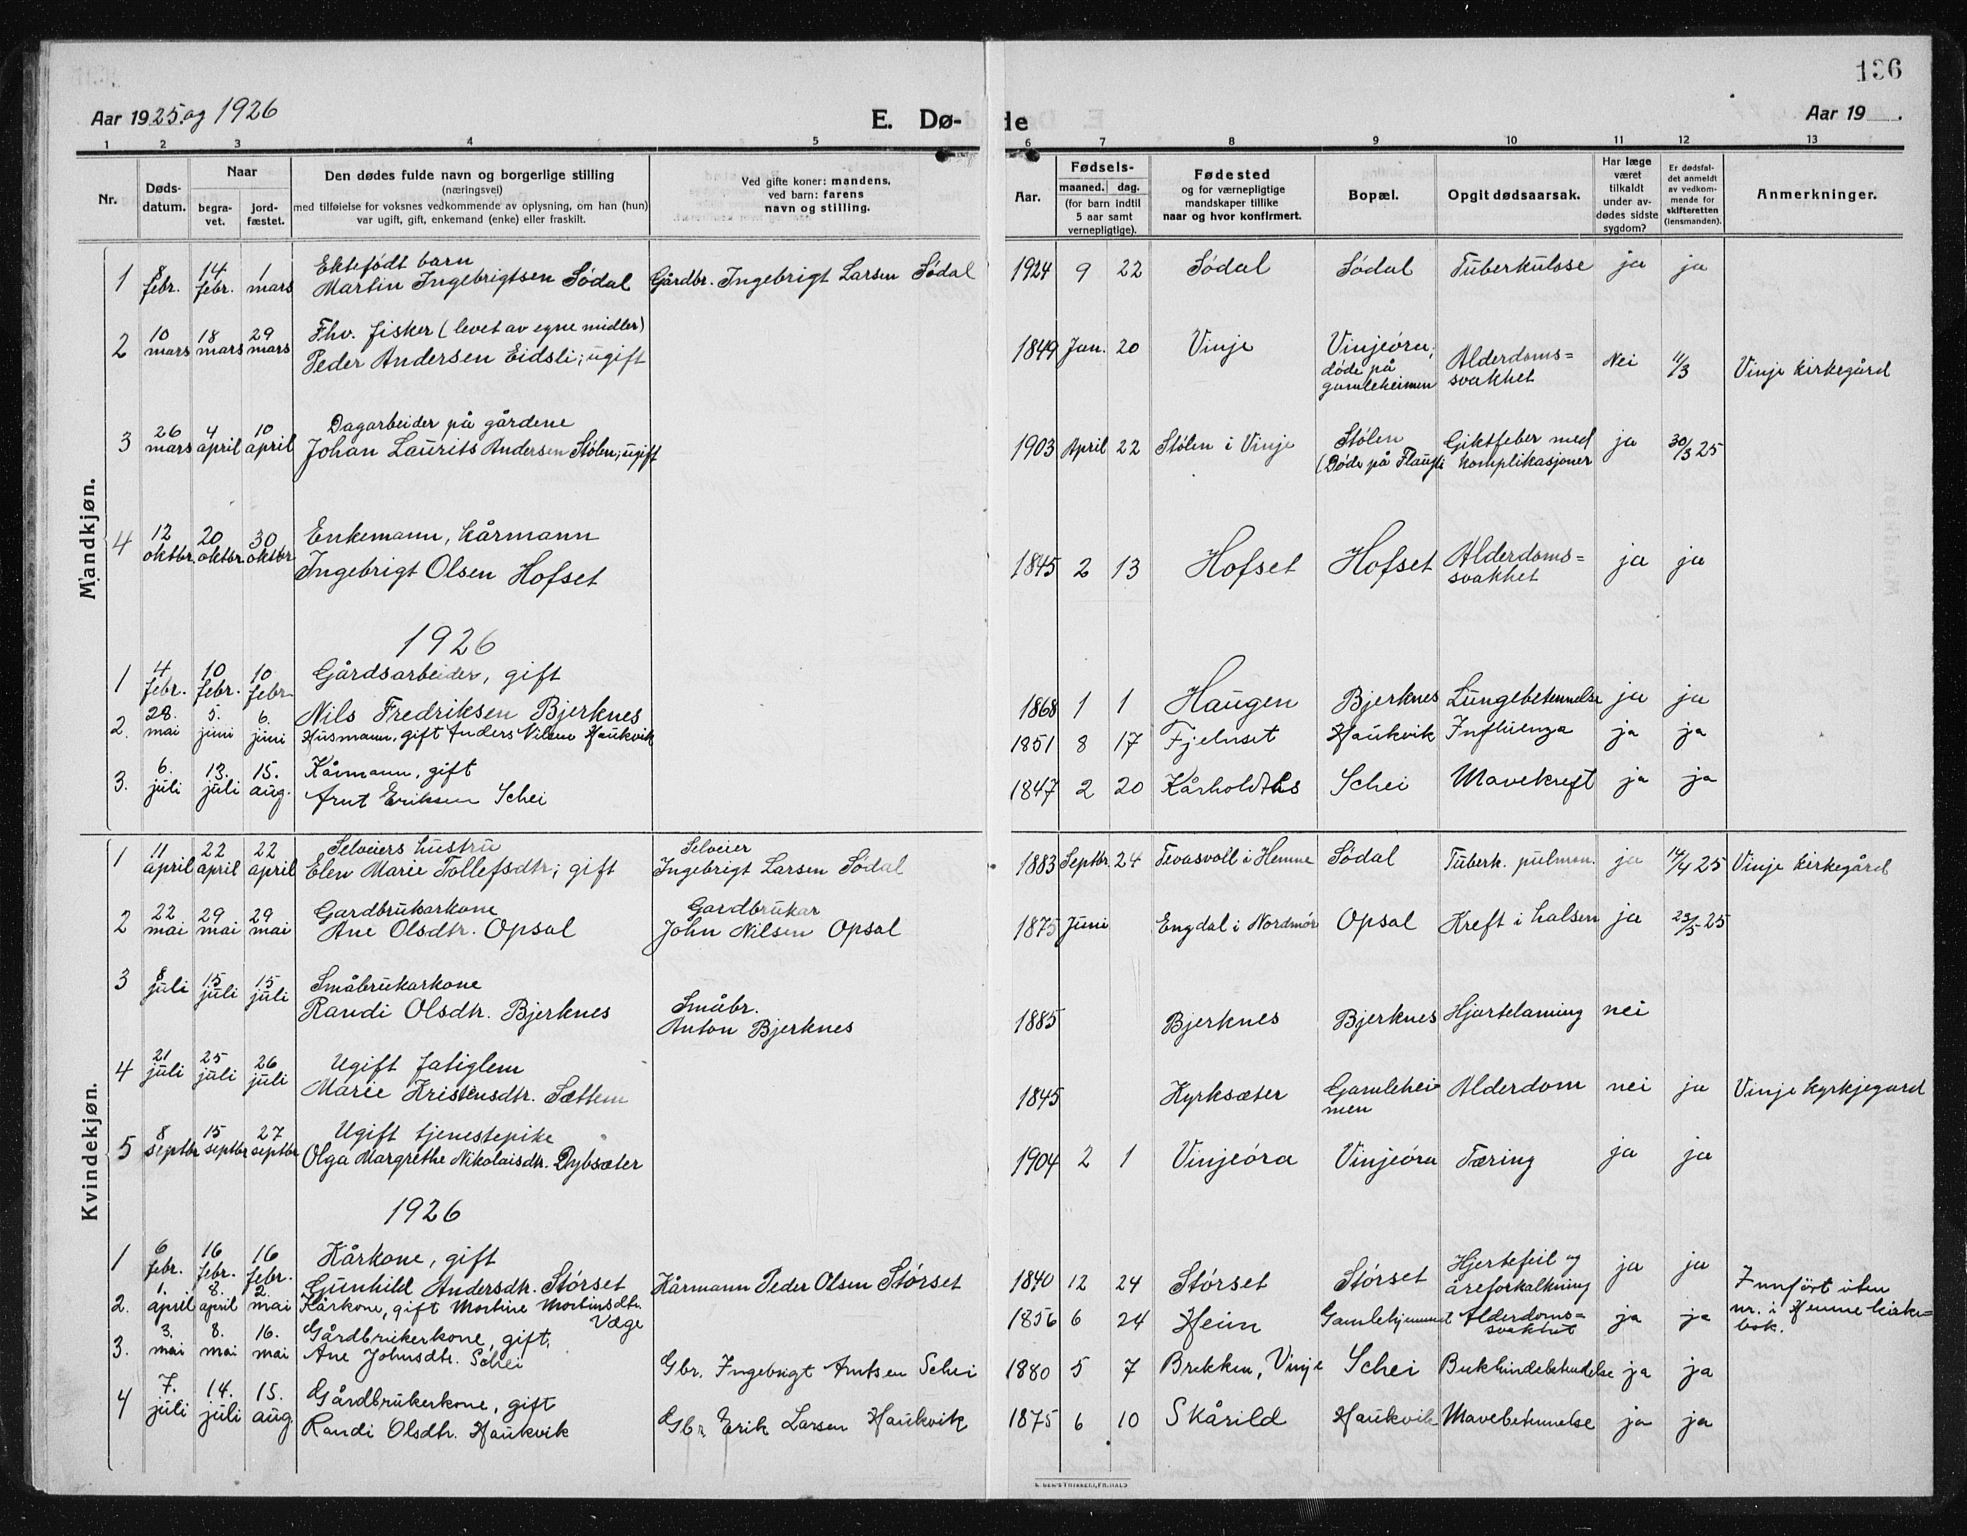 136
Aar 1925 og 1926
E. Dø-
de
Aar 19 .
1 2 3 4 5 6 7 8 9 10 11 12 13
Nr.
Døds-
datum.
Naar
begra-
vet.
jord-
fæstet.
Den dødes fulde navn og borgerlige stilling
(næringsvei)
med tilføielse for voksnes vedkommende av oplysning, om han (hun)
var ugift, gift, enkemand (enke) eller fraskilt.
Ved gifte koner: mandens,
ved barn: farens
navn og stilling.
Aar.
Fødsels-
maaned. dag.
(for barn indtil
5 aar samt
vernepligtige).
Fødested
og for værnepligtige
mandskaper tillike
naar og hvor konfirmert.
Bopæl.
Opgit dødsaarsak.
Har læge
været
tilkaldt
under av-
dødes sidste
sygdom?
Er dødsfal-
det anmeldt
av vedkom-
mende for
skifteretten
(lensmanden).
Anmerkninger.
Mandkjøn.
1 8 febr. 14 febr. 1 mars Ektefödt barn
Martin Ingebrigtsen Södal Gårdbr. Ingebrigt Larsen Södal 1924 9 22 Södal Södal Tuberkulose ja ja
2 10 mars 18 mars 29 mars Fhv. fisker (levet av egne midler)
Peder Andersen Eidsli; ugift 1849 Jan. 20 Vinje Vinjeöra; döde på gamleheimen Alderdoms=svakhet Nei 11/3 Vinje kirkegård
3 26 mars 4 april 10 april Dagarbeider på gårdene
Johan Laurits Andersen Stölen; ugift 1903 April 22 Stölen i Vinje Stölen (Döde på Flaugli Giktfeber med komplikasjoner ja 30/3 25
4 12 oktbr. 20 oktbr. 30 oktbr. Enkemann, kårmann
Ingebrigt Olsen Hofset 1845 2 13 Hofset Hofset Alderdoms=svakhet ja ja
1926
1 4 febr. 10 febr. 10 febr. Gårdsarbeider, gift
Nils Fredriksen Bjerknes 1868 1 1 Haugen Bjerknes Lungebetennelse ja ja
2. 28. mai 5. juni 6. juni Husmann, gift Anders Nilsen Haukvik 1851 8 17 Fjelnset Haukvik Influenza ja ja
3. 6. juli 13. juli 15. aug. Kårmann, gift
Arnt Eriksen Schei 1847 2 20 Kårholdths Schei Mavekreft ja ja
Kvindekjøn.
1 11 april 22 april 22 april Selveiers hustru
Elen Marie Tollefsdtr; gift Selveier Ingebrigt Larsen Södal 1883 Septbr. 24 Tevasvoll i Hemne Södal Tuberk. pulmon. ja 14/4 25 Vinje kirkegård
2 22 mai 29 mai 29 mai Gardbrukarkone
Ane Olsdtr. Opsal Gardbrukar John Nilsen Opsal 1875 Juni Engdal i Nordmör Opsal Kreft i halsen ja 23/5 25
3 8 juli 15 juli 15 juli Småbrukarkone
Randi Olsdtr. Bjerknes Småbr. Anton Bjerknes 1885 Bjerknes Bjerknes Hjartelaming nei
4 21 juli 25 juli 26 juli Ugift fatiglem
Marie Kristensdtr. Sættem 1845 Kyrksæter Gamlehei men Alderdom nei ja Vinje kyrkjegard
5 8 septbr 15 septbr 27 septbr Ugift tjenestepike
Olga Margrethe Nikolaisdtr. Dybsæter 1904 2 1 Vinjeöra Vinjeöra Tæring ja ja
1926
1 6 febr. 16 febr. 16 febr. Kårkone, gift
Gunhild Andersdtr. Störset Kårmann Peder Olsen Störset 1840 12 24 Störset Störset Hjertefeil og åreforkalkning ja ja
2. 1. april 8. april 2. mai Kårkone, gift Mortine Mortinsdtr. Væge 1856 6 24 Heim Gamlehjemmet Alderdoms=svakhet ja ja Innfört uten nr. i Hemne kirke=bok.
3. 3. mai 8. mai 16. mai Gårdbrukerkone, gift,
Ane Johnsdtr. Schei Gbr. Ingebrigt Arntsen Schei 1880 5 7 Brekken, Vinje Schei Bukhindebetendelse ja ja
4 7. juli 14. juli 15. aug. Gårdbrukerkone, gift
Randi Olsdtr. Haukvik Gbr. Erik Larsen Haukvik 1875 6 10 Skårild Haukvik Mavebetennelse ja ja